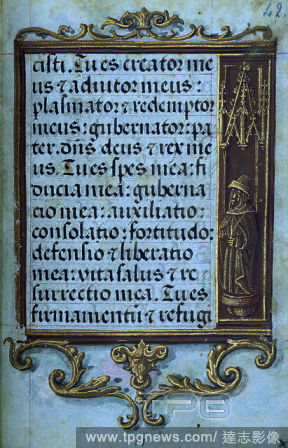 42.
cisti. Tu es creator me
us ⁊ adiutor meus:
plasmator ⁊ redemptor
meus: gubernator: pa
ter. dñs deus ⁊ rex me
us. Tu es spes mea: fi
ducia mea: guberna
cio mea: auxiliatio:
consolatio: fortitudo:
defensio ⁊ liberatio
mea: vita salus ⁊ re
surrectio mea. Tu es
firmamentū ⁊ refugi
PG
www.tpgnews.com / 達志影像